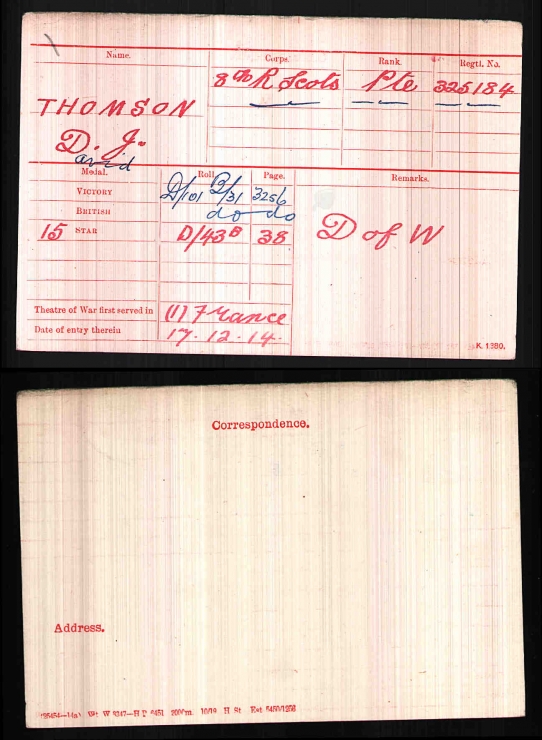 Name. Corps. Rank. Regtl. No.
8th R Scots Pte 325184
THOMSON
D. J.
David
Medal. Roll. Page. Remarks.
VICTORY D/101 B/31 3256
BRITISH do do
15 STAR D/43B 38 D of W
Theatre of War first served in (1) France
Date of entry therein 17.12.14.
K. 1380.
Correspondence.
Address.
10/19 H St